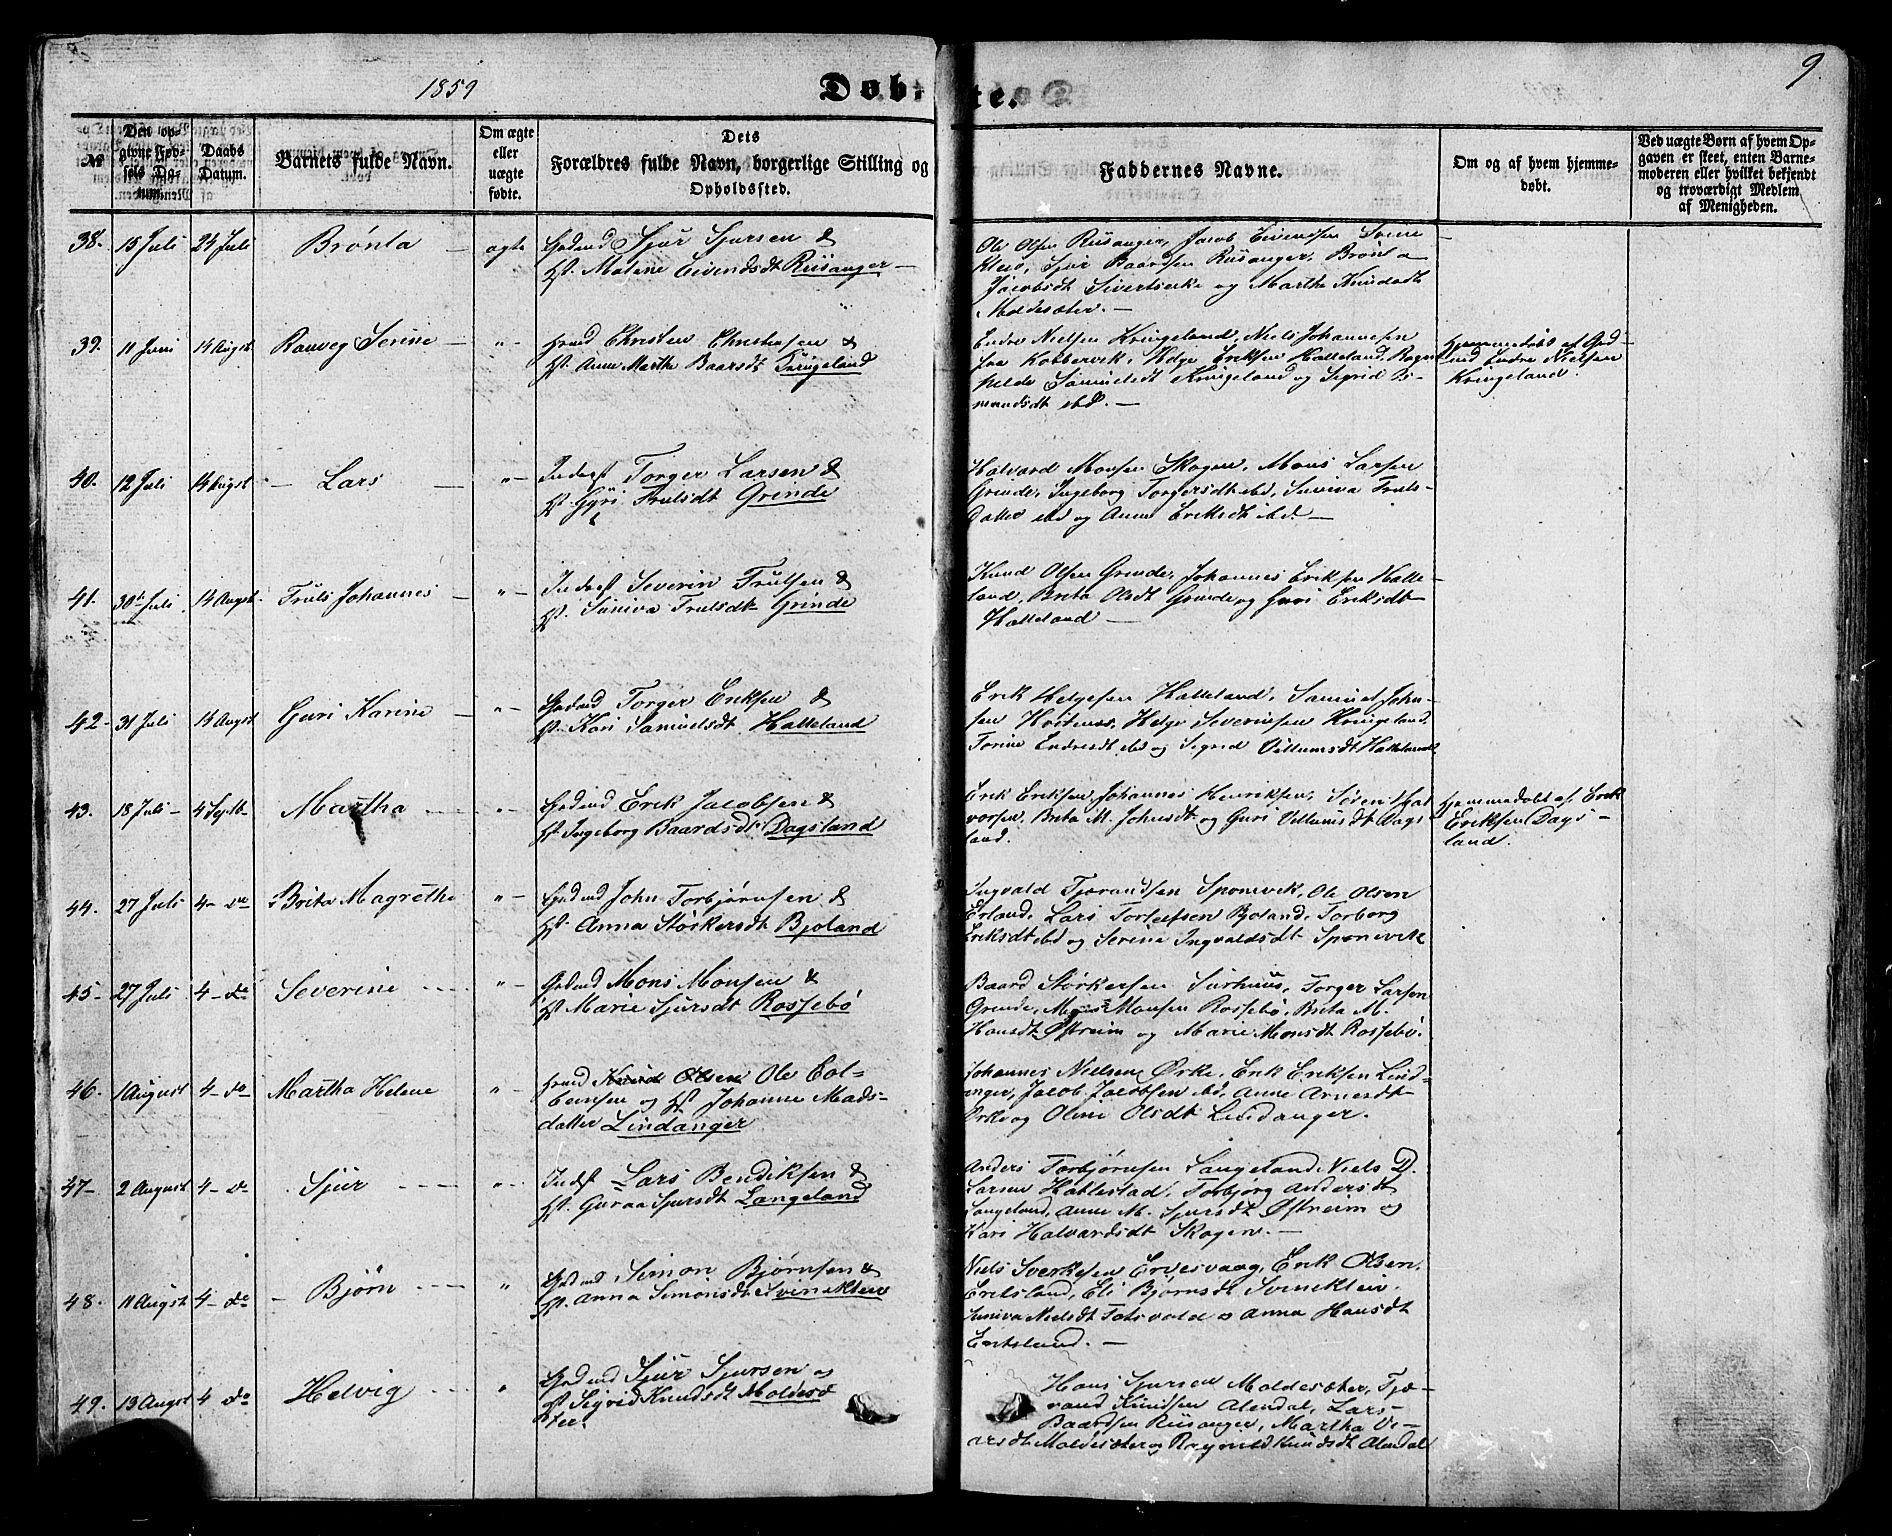 1859
Døbte.
9
№
Den opgivne Fødsels Datum.
Daabs Datum.
Barnets fulde Navn.
Om ægte eller uægte fødte.
Dets Forældres fulde Navn, borgerlige Stilling og Opholdssted.
Faddernes Navne.
Om og af hvem hjemmedøbt.
Ved uægte Børn af hvem Opgaven er skeet, enten Barnemoderen eller hvilket bekjendt og troværdigt Medlem af Menigheden.
38. 15 Juli 24 Juli Brønla — ægte Gdmd Sjur Sjursen &
Hst. Malene Eivendsdt Riisanger —
Ole Olsen Riisanger, Jacob Eivendsen Svine
kleiv, Sjur Baardsen Riisanger, Brønla
Jacobsdt Sivertsvike og Martha Knudsdt
Moldesæter. —
39. 11 Juni 14 Augst Ranveg Serine — "- Hmd Christen Christensen &
Hst. Anne Marthe Baarsdt Tungeland
Endre Nielsen Kringeland, Niels Johannesen
fra Kobbervik, Helge Eriksen Halleland, Ragn
helde Samuelsdt Kringeland og Sigrid Os-
mundsdt ibd. —
Hjemmedøbt af Gd
md Endre Nielsen
Kringeland.
40. 12 Juli 14 Augst — Lars — "- Inderst Torger Larsen &
Hst. Guri Trulsdt Grinde
Halvard Monsen Skogen, Mons Larsen
Grinde, Ingeborg Torgersdt ibd, Suniva Truls-
datter ibd og Anne Eriksdt ibd. —
41. 30te Juli 14 Augst. Truls Johannes — "- Inderst Severin Trulsen &
Hst. Suniva Trulsdt Grinde
Knud Olsen Grinde, Johannes Eriksen Halle-
land, Brita Olsdt Grinde og Guri Eriksdt
Halleland —
42- 31 Juli 14 Augst Guri Karine — "- Gdmd Torger Eriksen &
Hst. Kari Samuelsdt Halleland
Erik Helgesen Halleland, Samuel John-
sen Hvitenes, Helge Severinsen Kringeland,
Torine Endresdt ibd og Sigrid Villumsdt Halleland.
43. 18 Juli — 4 Septb. Martha "- Gdmd Erik Jacobsen &
Hst. Ingeborg Baardsdt Dagsland
Erik Eriksen, Johannes Henriksen, Søren Hal
vorsen, Brita M. Johnsdt og Guri Villumsdt Dags
land.
Hjemmedøbt af Erik
Eriksen Dags-
land.
44. 27 Juli 4- do Brita Magrethe "- Gdmd John Torbjørnsen &
Hst. Anna Størkersdt Bjoland
Ingvald Tjerandsen Sponevik, Ole Olsen
Erland, Lars Torleifsen Bjoland, Torborg
Eriksdt ibd og Serine Ingvaldsdt Sponevik
45- 27 Juli 4- do Severine "- Gdmd Mons Monsen &
Hst Marie Sjursdt Rossebø
Baard Størkersen Surhuus, Torger Larsen
Grinde, Monsen Rossebø, Brita M.
Hansdt Østreim og Marie Monsdt Rossebø.
46. 1 August 4- do Martha Helene "- Hmd Knud Olsen Ole Col-
bensen og Hst Johanne Mads-
datter Lindanger
Johannes Nielsen Ørke, Erik Eriksen Lind-
anger, Jacob Jacobsen ibd, Anne Arnesdt
Ørke og Oline Olsdt Lindanger.
47- 2 August 4- do Sjur "- Indst Lars Bendiksen &
Hst. Guraa Sjursdt Langeland
Anders Torbjørnsen Langeland, Niels D.
Larsen Hallestad, Torbjørg Andersdt
Langeland, Anne M. Sjursdt Østreim og
Kari Halvardsdt Skogen. —
48. 11 Augst 4- do — Bjørn " Gdmd Simon Bjørnsen &
Hst. Anna Simonsdt Svinekleiv
Niels Sverkesen Ervesvaag, Erik Olsen
Eretsland, Eli Bjørnsdt Svinekleiv,
Suniva Nielsdt Totsvold & Anna Hansdt
Eretsland. —
49. 13 Augst 4 do Helvig " Gdmd Sjur Sjursen og
Hst. Sigrid Knudsdt Moldesæ
ter
Hans Sjursen Moldesæter, Tjæ-
rand Knudsen Alendal, Lars
Baardsen Riisanger, Martha Ve-
arsdt Moldesæter og Ragnild Knudsdt Alendal